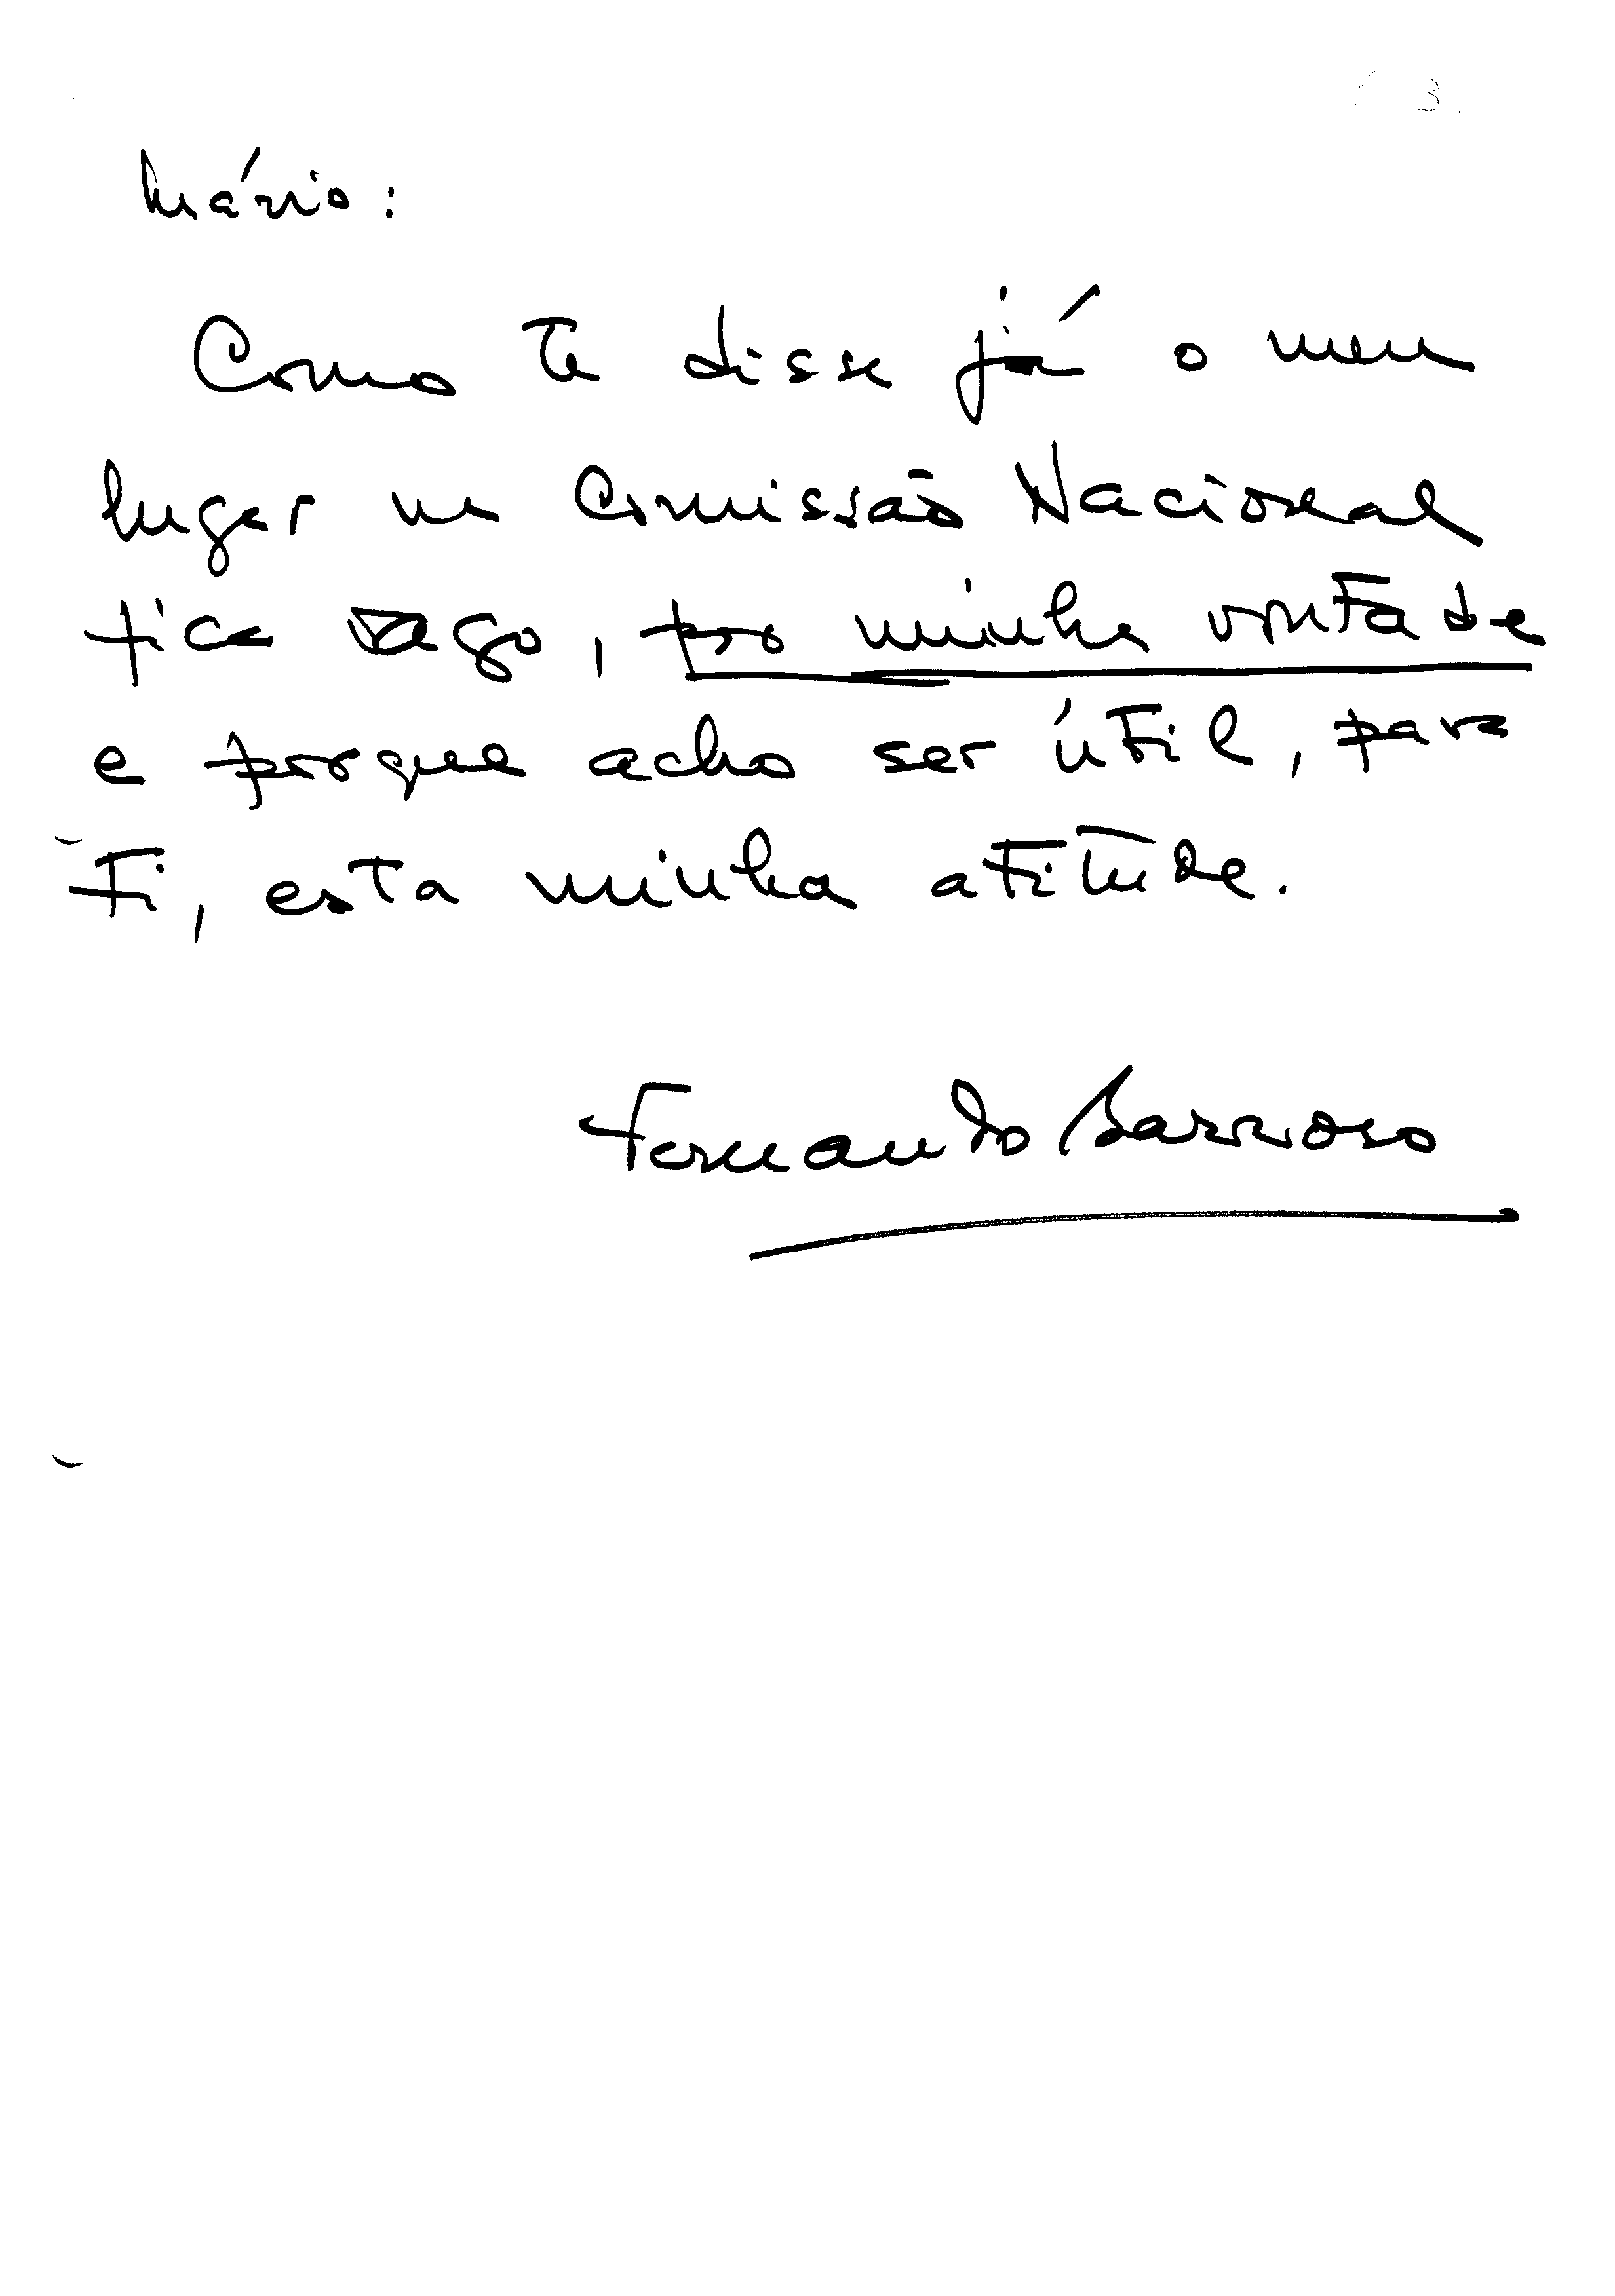 Mário:
Como te disse já o meu
lugar na Comissão Nacional
fica vago, por minha vontade
e porque acho ser útil, para
ti, esta minha atitude.
Fernando Barroso